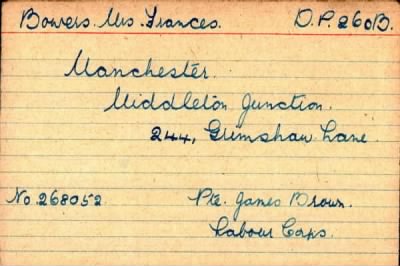 Bowers. Mrs. Frances. D.P. 260B.
Manchester.
Middleton Junction.
244, Grimshaw Lane.
No 268052 Pte. James Brown.
Labour Corps.